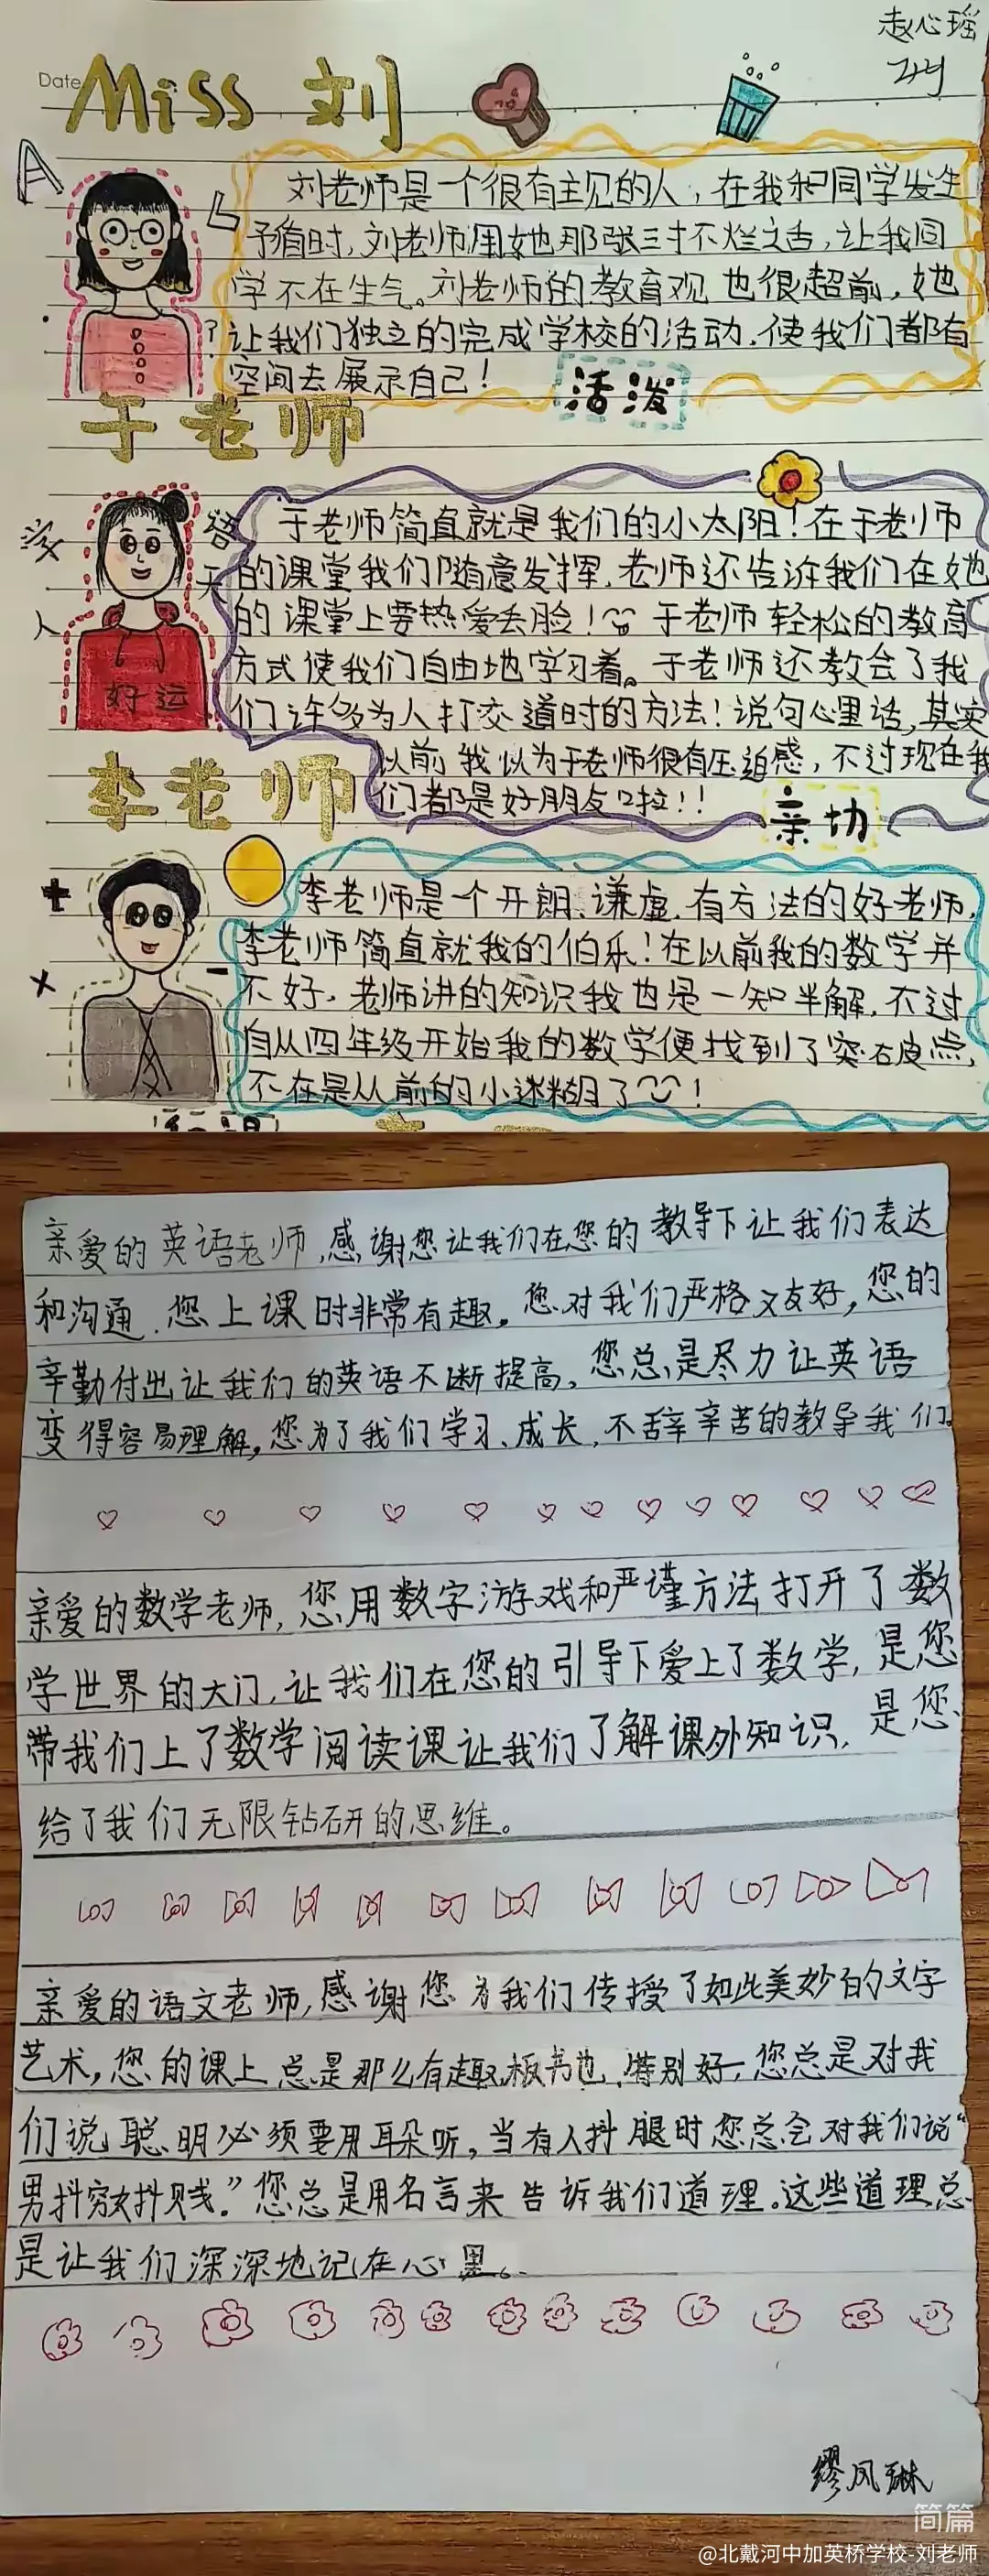 赵心瑶
Date
Miss 刘
A
刘老师是一个很有主见的人，在我和同学发生
矛盾时，刘老师用她那张三寸不烂之舌，让我同
学不在生气。刘老师的教育观也很超前，她
让我们独立的完成学校的活动，使我们都有
空间去展示自己！
活泼
于老师
字 语
人 天
好运
于老师简直就是我们的小太阳！在于老师
的课堂我们随意发挥，老师还告诉我们在她
的课堂上要热爱丢脸！于老师轻松的教育
方式使我们自由地学习着。于老师还教会了我
们许多为人打交道时的方法！说句心里话，其实
以前我以为于老师很有压迫感，不过现在我
们都是好朋友啦！！
亲切
李老师
+ - ×
李老师是一个开朗、谦虚、有方法的好老师，
李老师简直就我的伯乐！在以前我的数学并
不好，老师讲的知识我也是一知半解，不过
自从四年级开始我的数学便找到了突破点，
不在是从前的小迷糊了！
亲爱的英语老师，感谢您让我们在您的教导下让我们表达
和沟通，您上课时非常有趣。您对我们严格又友好，您的
辛勤付出让我们的英语不断提高。您总是尽力让英语
变得容易理解。您为了我们学习、成长，不辞辛苦的教导我们。
亲爱的数学老师，您用数字游戏和严谨方法打开了数
学世界的大门，让我们在您的引导下爱上了数学，是您
带我们上了数学阅读课让我们了解课外知识，是您
给了我们无限钻研的思维。
亲爱的语文老师，感谢您为我们传授了如此美妙的文字
艺术，您的课上总是那么有趣，板书也特别好，您总是对我
们说聪明必须要用耳朵听，当有人抖腿时您总会对我们说“
男抖穷女抖贱。”您总是用名言来告诉我们道理。这些道理总
是让我们深深地记在心里。
缪风琳
简篇
@北戴河中加英桥学校-刘老师